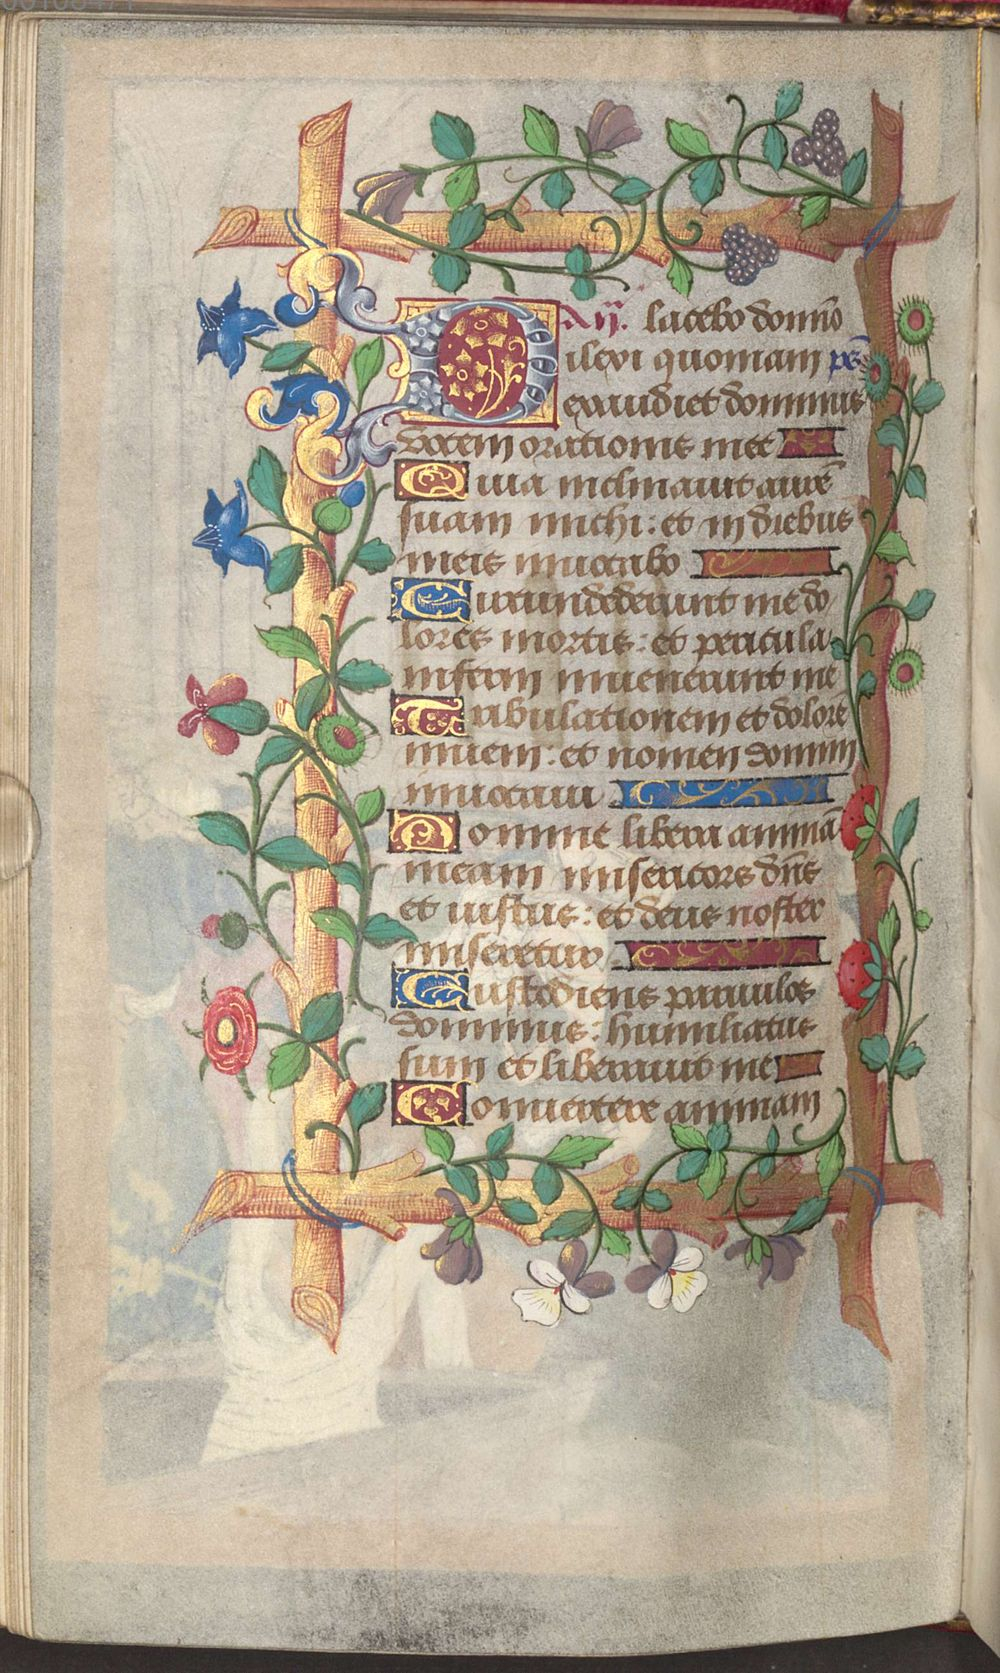 00106471
An. Lacebo domno
Dilexi quoniam ps
exaudiet dominus
Vocem orationis mee
Quia inclinavit aurē
suam michi: et in diebus
meis invocabo
Circundederunt me do
lores mortis: et pericula
inferni invenerunt me
Tribulationem et dolore
inveni: et nomen domini
invocavi
O domine libera animā
meam misericors dn̄s
et iustus: et deus noster
miseretur
Custodiens parvulos
dominus: humiliatus
sum et liberavit me
Convertere animam